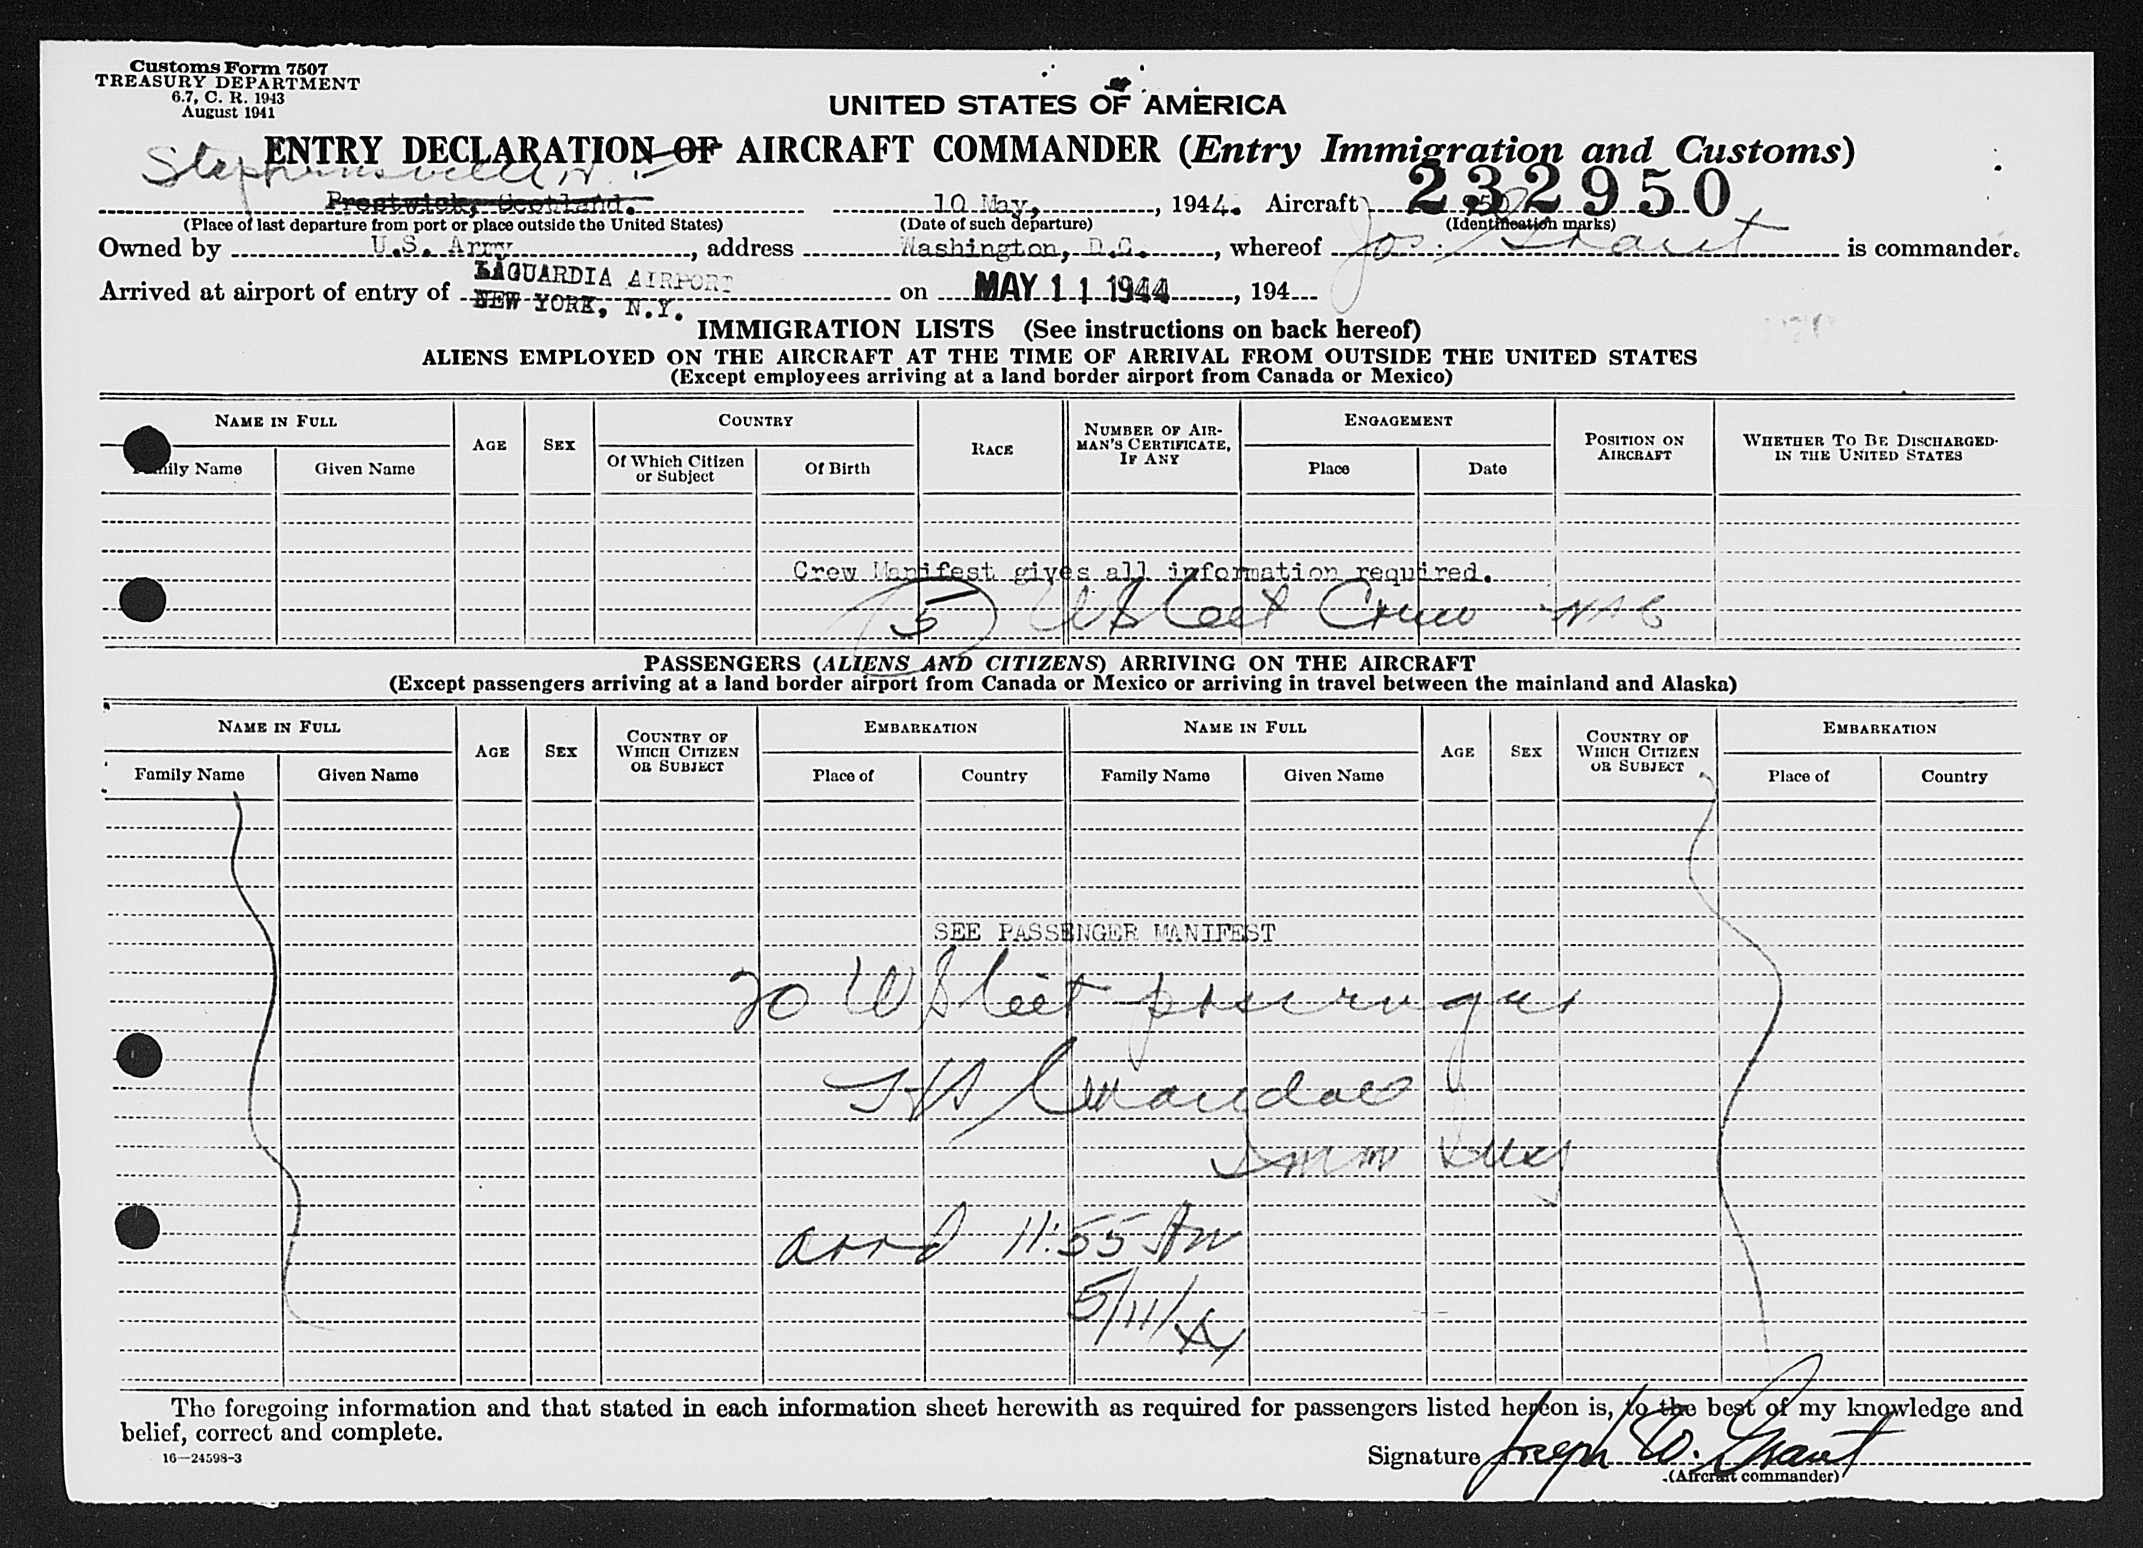 Customs Form 7507
TREASURY DEPARTMENT
6.7, C. R. 1943
August 1941
UNITED STATES OF AMERICA
ENTRY DECLARATION OF AIRCRAFT COMMANDER (Entry Immigration and Customs)
Stephensville, N.F.
Prestwick, Scotland. 10 May, 1944. Aircraft 232950
(Place of last departure from port or place outside the United States) (Date of such departure) (Identification marks)
Owned by U.S. Army, address Washington, D.C., whereof Jos. Grant is commander.
Arrived at airport of entry of LAGUARDIA AIRPORT on MAY 11 1944, 194
NEW YORK, N.Y.
IMMIGRATION LISTS (See instructions on back hereof)
ALIENS EMPLOYED ON THE AIRCRAFT AT THE TIME OF ARRIVAL FROM OUTSIDE THE UNITED STATES
(Except employees arriving at a land border airport from Canada or Mexico)
NAME IN FULL AGE SEX COUNTRY RACE NUMBER OF AIRMAN'S CERTIFICATE, IF ANY ENGAGEMENT POSITION ON AIRCRAFT WHETHER TO BE DISCHARGED IN THE UNITED STATES
Family Name Given Name Of Which Citizen or Subject Of Birth Place Date
Crew Manifest gives all information required.
5 USCit Crew
PASSENGERS (ALIENS AND CITIZENS) ARRIVING ON THE AIRCRAFT
(Except passengers arriving at a land border airport from Canada or Mexico or arriving in travel between the mainland and Alaska)
NAME IN FULL AGE SEX COUNTRY OF WHICH CITIZEN OR SUBJECT EMBARKATION NAME IN FULL AGE SEX COUNTRY OF WHICH CITIZEN OR SUBJECT EMBARKATION
Family Name Given Name Place of Country Family Name Given Name Place of Country
SEE PASSENGER MANIFEST
20 USCit passengers
Imm Insp
arrd 11:55 AM
5/11/44
The foregoing information and that stated in each information sheet herewith as required for passengers listed hereon is, to the best of my knowledge and
belief, correct and complete.
16—24598-3
Signature Joseph W. Grant
(Aircraft commander)